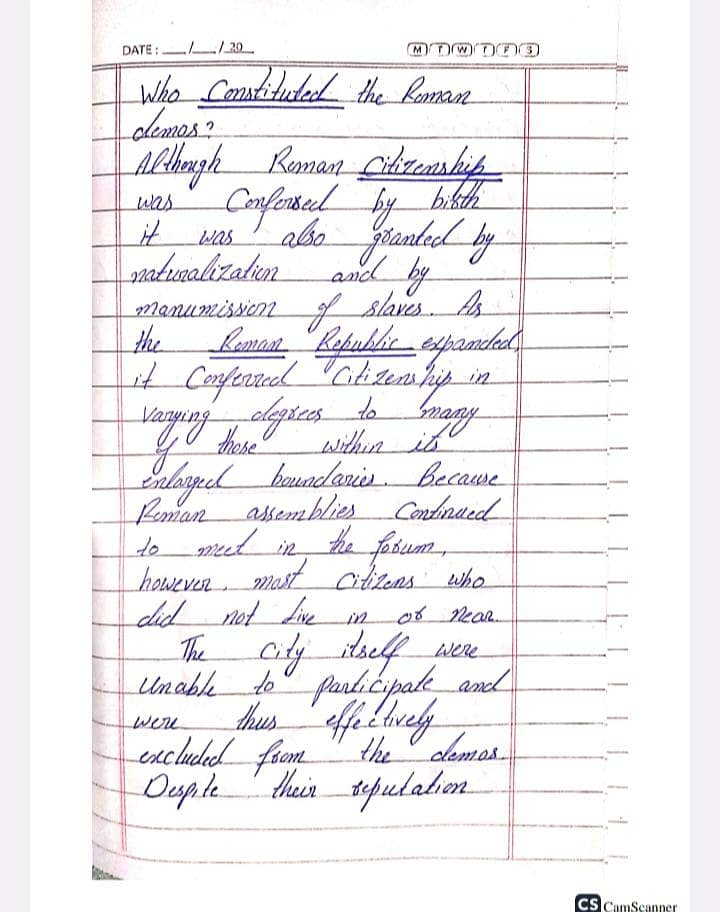 DATE: __/__/20__
M T W T F S
Who Constituted the Roman
demos?
Although Roman Citizenship
was Conferred by birth
it was also granted by
naturalization and by
manumission of slaves. As
the Roman Republic expanded,
it Conferred Citizenship in
varying degrees to many
of those within its
enlarged boundaries. Because
Roman assemblies Continued
to meet in the forum,
however, most Citizens who
did not live in or near
The City itself were
Unable to participate and
were thus effectively
excluded from the demos.
Despite their reputation
CS CamScanner